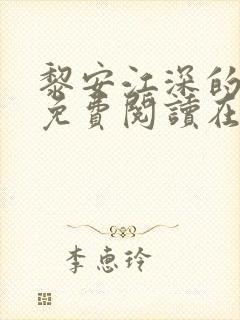 黎安江深的
免費閱讀在
李惠玲